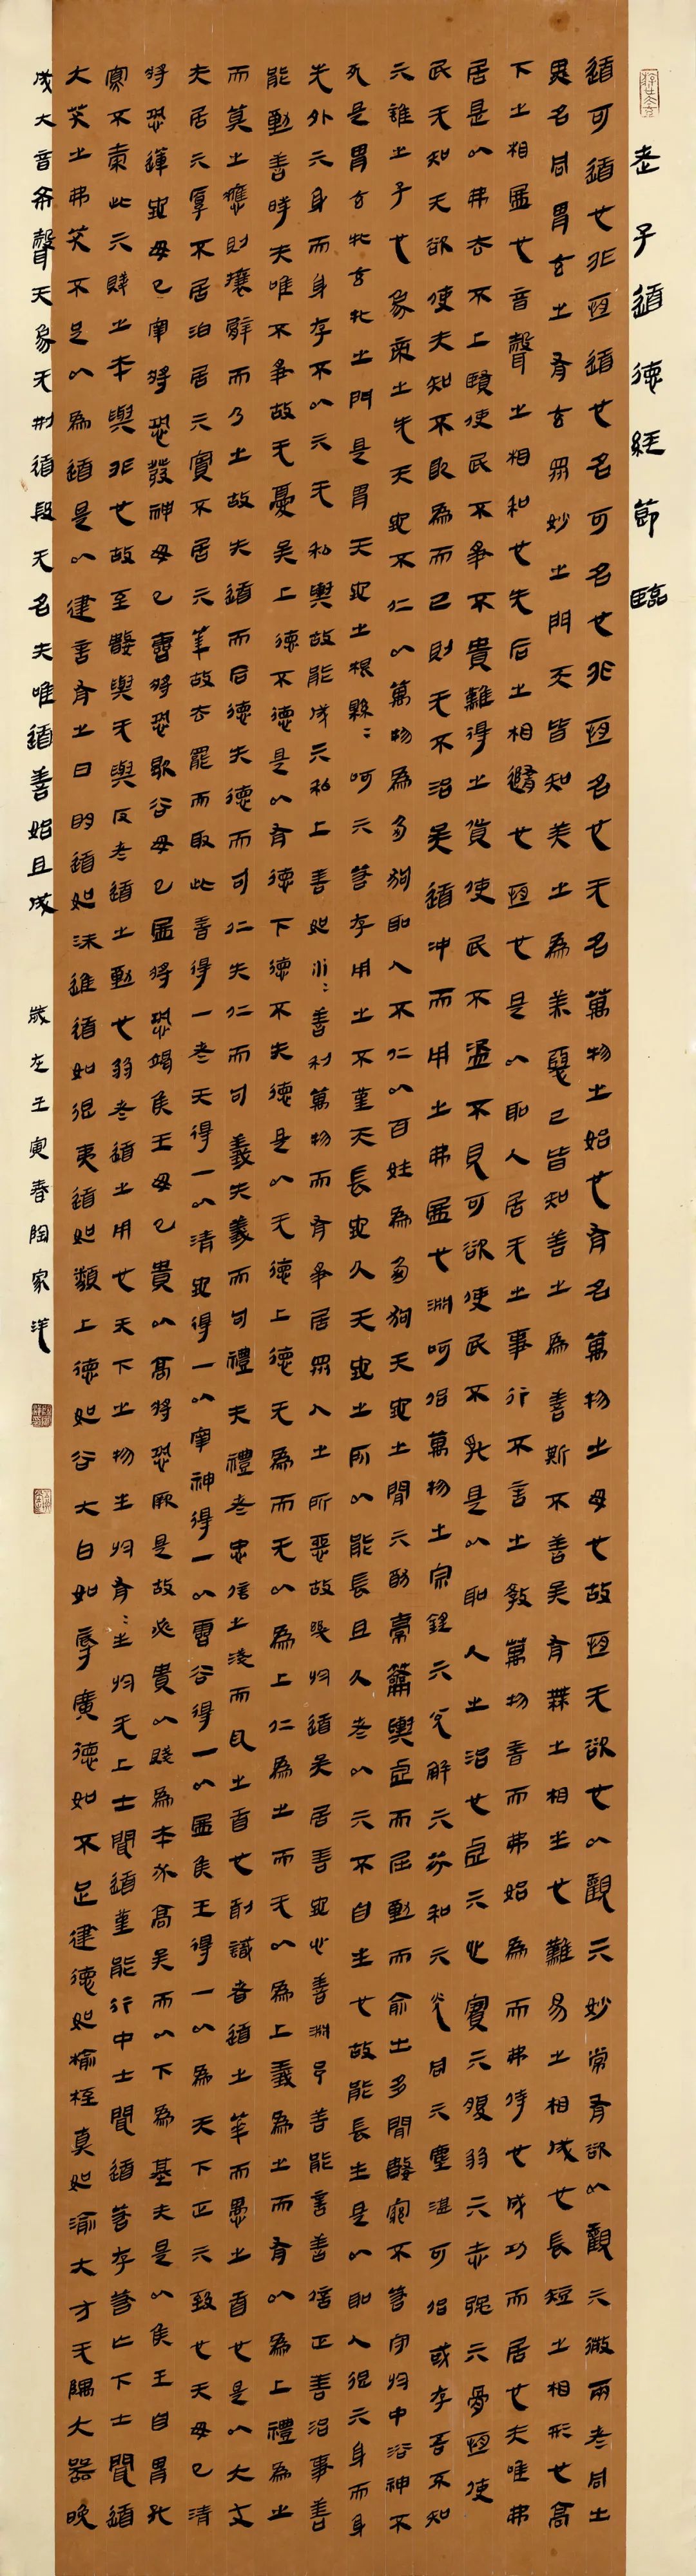 老子道德經節臨
道可道也非恆道也名可名也非恆名也无名萬物之始也有名萬物之母也故恆无欲也以觀亓妙常有欲以觀亓徼兩者同出
異名同胃玄之有玄眾妙之門天皆知美之為美惡已皆知善之為善斯不善矣有無之相生也難易之相成也長短之相形也高
下之相盈也音聲之相和也先后之相隨也恆也是以聖人居无之事行不言之教萬物昔而弗始為而弗侍也成功而居也夫唯弗
居是以弗去不上賢使民不爭不貴難得之貨使民不盜不見可欲使民不亂是以聖人之治也虛亓心實亓腹弱亓志強亓骨恆使
民无知无欲使夫知不敢為而已則无不治矣道沖而用之弗盈也淵呵佁萬物之宗銼亓兌解亓紛和亓光同亓塵湛呵佁或存吾不知
亓誰之子也象帝之先天地不仁以萬物為芻狗聖人不仁以百姓為芻狗天地之間亓猶橐籥輿虛而屈動而俞出多聞數窮不若守於中浴神不
死是胃玄牝玄牝之門是胃天地之根緜〻呵亓若存用之不堇天長地久天地之所以能長且久者以亓不自生也故能長生是以聖人退亓身而身
先外亓身而身存不以亓无私輿故能成亓私上善如水〻善利萬物而有爭居眾人之所惡故幾於道矣居善地心善淵予善能言善信正善治事善
能動善時夫唯不爭故无憂矣上德不德是以有德下德不失德是以无德上德无為而无以為上仁為之而无以為上義為之而有以為上禮為之
而莫之應則攘臂而乃之故失道而后德失德而句仁失仁而句義失義而句禮夫禮者忠信之淺而亂之首也前識者道之華而愚之首也是以大丈
夫居亓厚不居泊居亓實不居亓華故去罷而取此昔得一者天得一以清地得一以寧神得一以靈谷得一以盈侯王得一以為天下正亓致也天毋已清
將恐蓮地毋已寧將恐發神毋已靈將恐歇谷毋已盈將恐竭侯王毋已貴以高將恐厥是故必貴以賤為本必高矣而以下為基夫是以侯王自胃孤
寡不穀此亓賤之本與非也故至數與无與反者道之動也弱者道之用也天下之物生於有〻生於无上士聞道堇能行中士聞道若存若亡下士聞道
大笑之弗笑不足以為道是以建言有之曰明道如沬進道如退夷道如類上德如谷大白如辱廣德如不足建德如偷桎真如渝大方无隅大器晚
成大音希聲天象无刑道段无名夫唯道善始且成
歲在壬寅春陶家洋